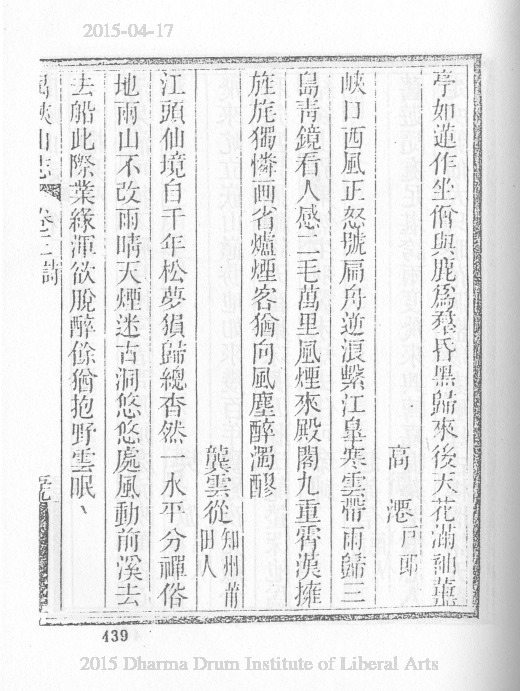 2015-04-17
亭如蓮作坐僧與鹿爲羣昏黑歸來後天花滿袖薰
高 戸部
峽口西風正怒號扁舟逆浪繫江皐寒雲帶雨歸三
島靑鏡看人感二毛萬里風煙來殿閣九重霄漢擁
旌旄獨憐画省爐煙客猶向風塵醉濁醪
龔雲從 知州莆田人
江頭仙境自千年松夢猿歸總杳然一水平分禪俗
地兩山不改雨晴天煙迷古洞悠悠處風動前溪去
去船此際業緣渾欲脫醉餘猶抱野雲眠、
禺峽山志 卷三 詩
439
2015 Dharma Drum Institute of Liberal Arts